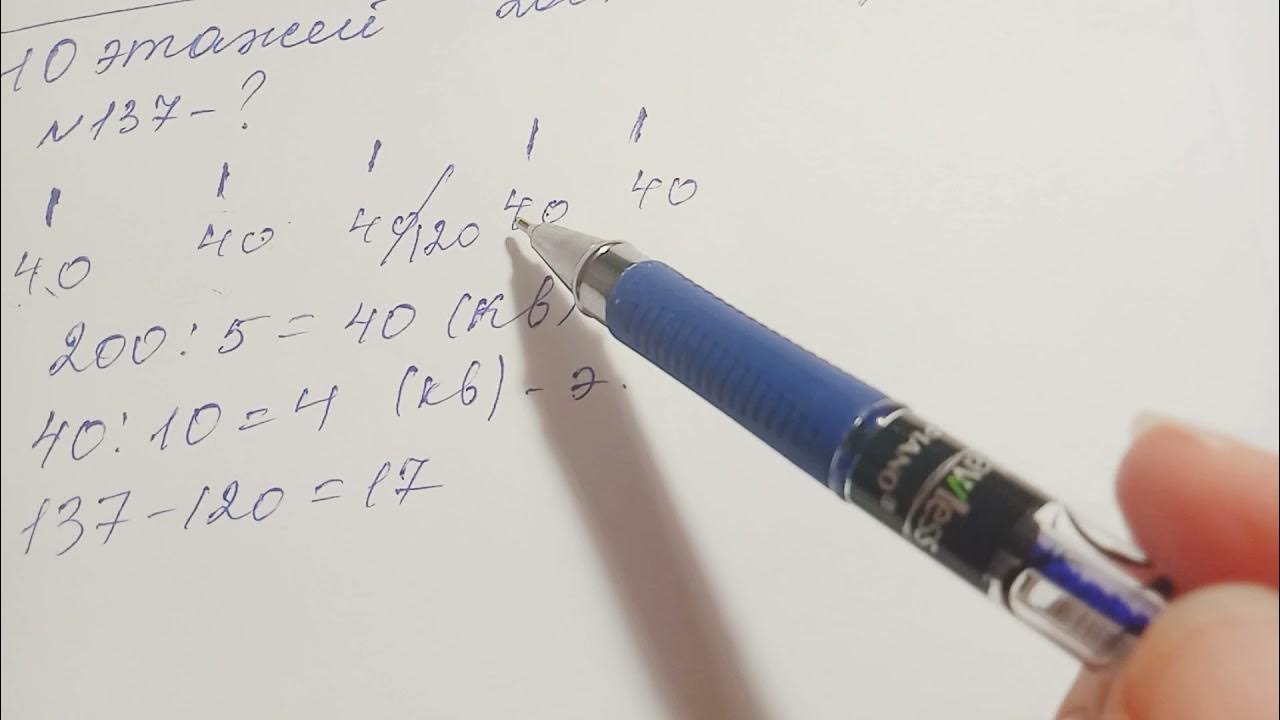 10 этажей
N137-?
1 1 1 1 1
40 40 40/120 40 40
200:5=40 (кв)
40:10=4 (кв)-э.
137-120=17
PIANO